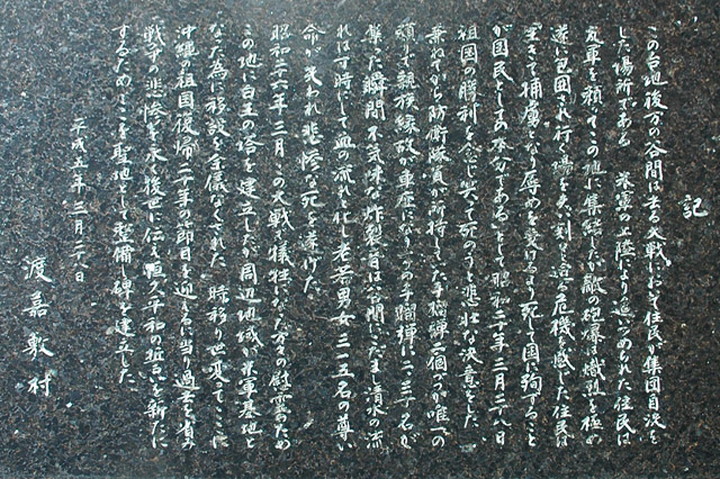 記
この台地後方の谷間は去る大戦において住民が集団自決を
した場所である 米軍の上陸により追いつめられた住民は
友軍を頼ってこの地に集結したが敵の砲爆は熾烈を極め
遂に包囲され行く場を失い刻々と迫る危機を感じた住民は
「生きて捕虜となり辱めを受けるより死して国に殉ずること
が国民としての本分である」として昭和二十年三月二十八日
祖国の勝利を念じ笑って死のうと悲壮な決意をした
兼ねてから防衛隊員が所持していた手榴弾二個づつが唯一の
頼りで親族縁故が車座になり一ケの手榴弾に二、三十名が
集った瞬間不気味な炸裂音は谷間にこだまし清水の流
れは寸時にして血の流れと化し老若男女三一五名の尊い
命が失われ悲惨な死を遂げた
昭和二十六年三月この大戦で犠牲になった方々の慰霊のため
この地に白玉の塔を建立したが周辺地域が米軍基地と
なった為に移設を余儀なくされた 時移り世変ってここに
沖縄の祖国復帰二十年の節目を迎えるに当り過去を省み
戦争の悲惨を永く後世に伝え恒久平和の誓いを新たに
するためここを聖地として整備し碑を建立した
平成五年三月二八日
渡嘉敷村